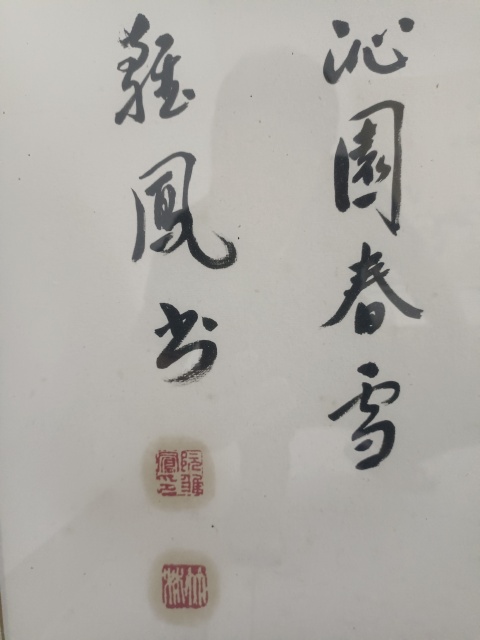 沁園春雪
雛鳳书